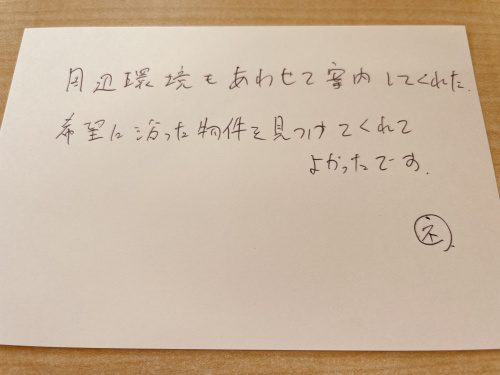 周辺環境もあわせて案内してくれた.
希望に沿った物件を見つけてくれて
よかったです.
ネ